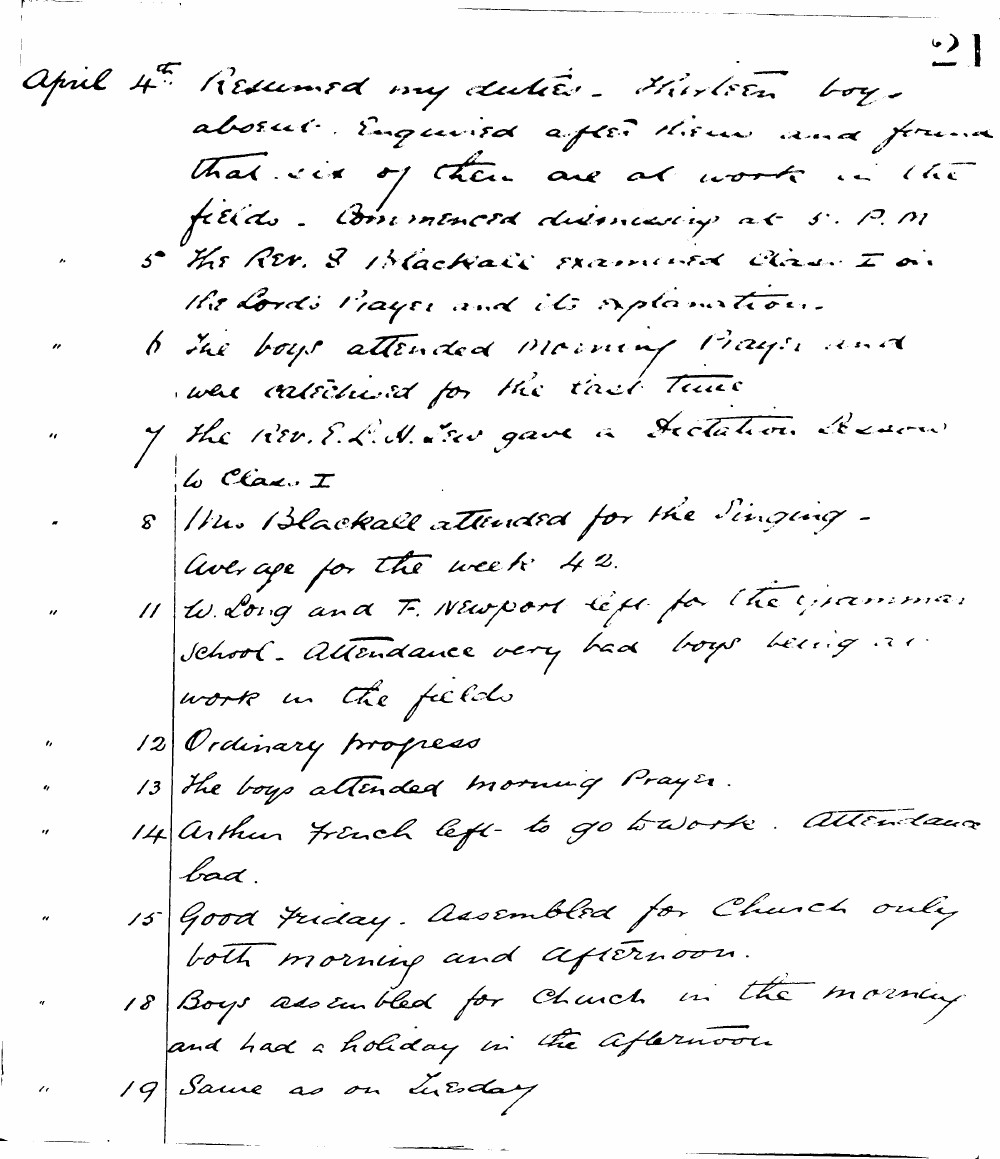 21
April 4th Resumed my duties - Thirteen boys
absent. Enquired after them and found
that six of them are at work in the
fields - Commenced dismissing at 5. P.M
" 5 The Rev. S Blackall examined Class I on
the Lord's Prayer and its explanation.
" 6 The boys attended Morning Prayer and
were catechised for the last time
" 7 The Rev. E. L. H. Tew gave a Dictation Lesson
to Class I
" 8 Mrs Blackall attended for the Singing -
Average for the week 42.
" 11 W. Long and F. Newport left for the Grammar
School - Attendance very bad boys being at
work in the fields
" 12 Ordinary progress
" 13 The boys attended Morning Prayer.
" 14 Arthur French left to go to work. Attendance
bad.
" 15 Good Friday. Assembled for Church only
both morning and afternoon.
" 18 Boys assembled for Church in the morning
and had a holiday in the afternoon
" 19 Same as on Tuesday